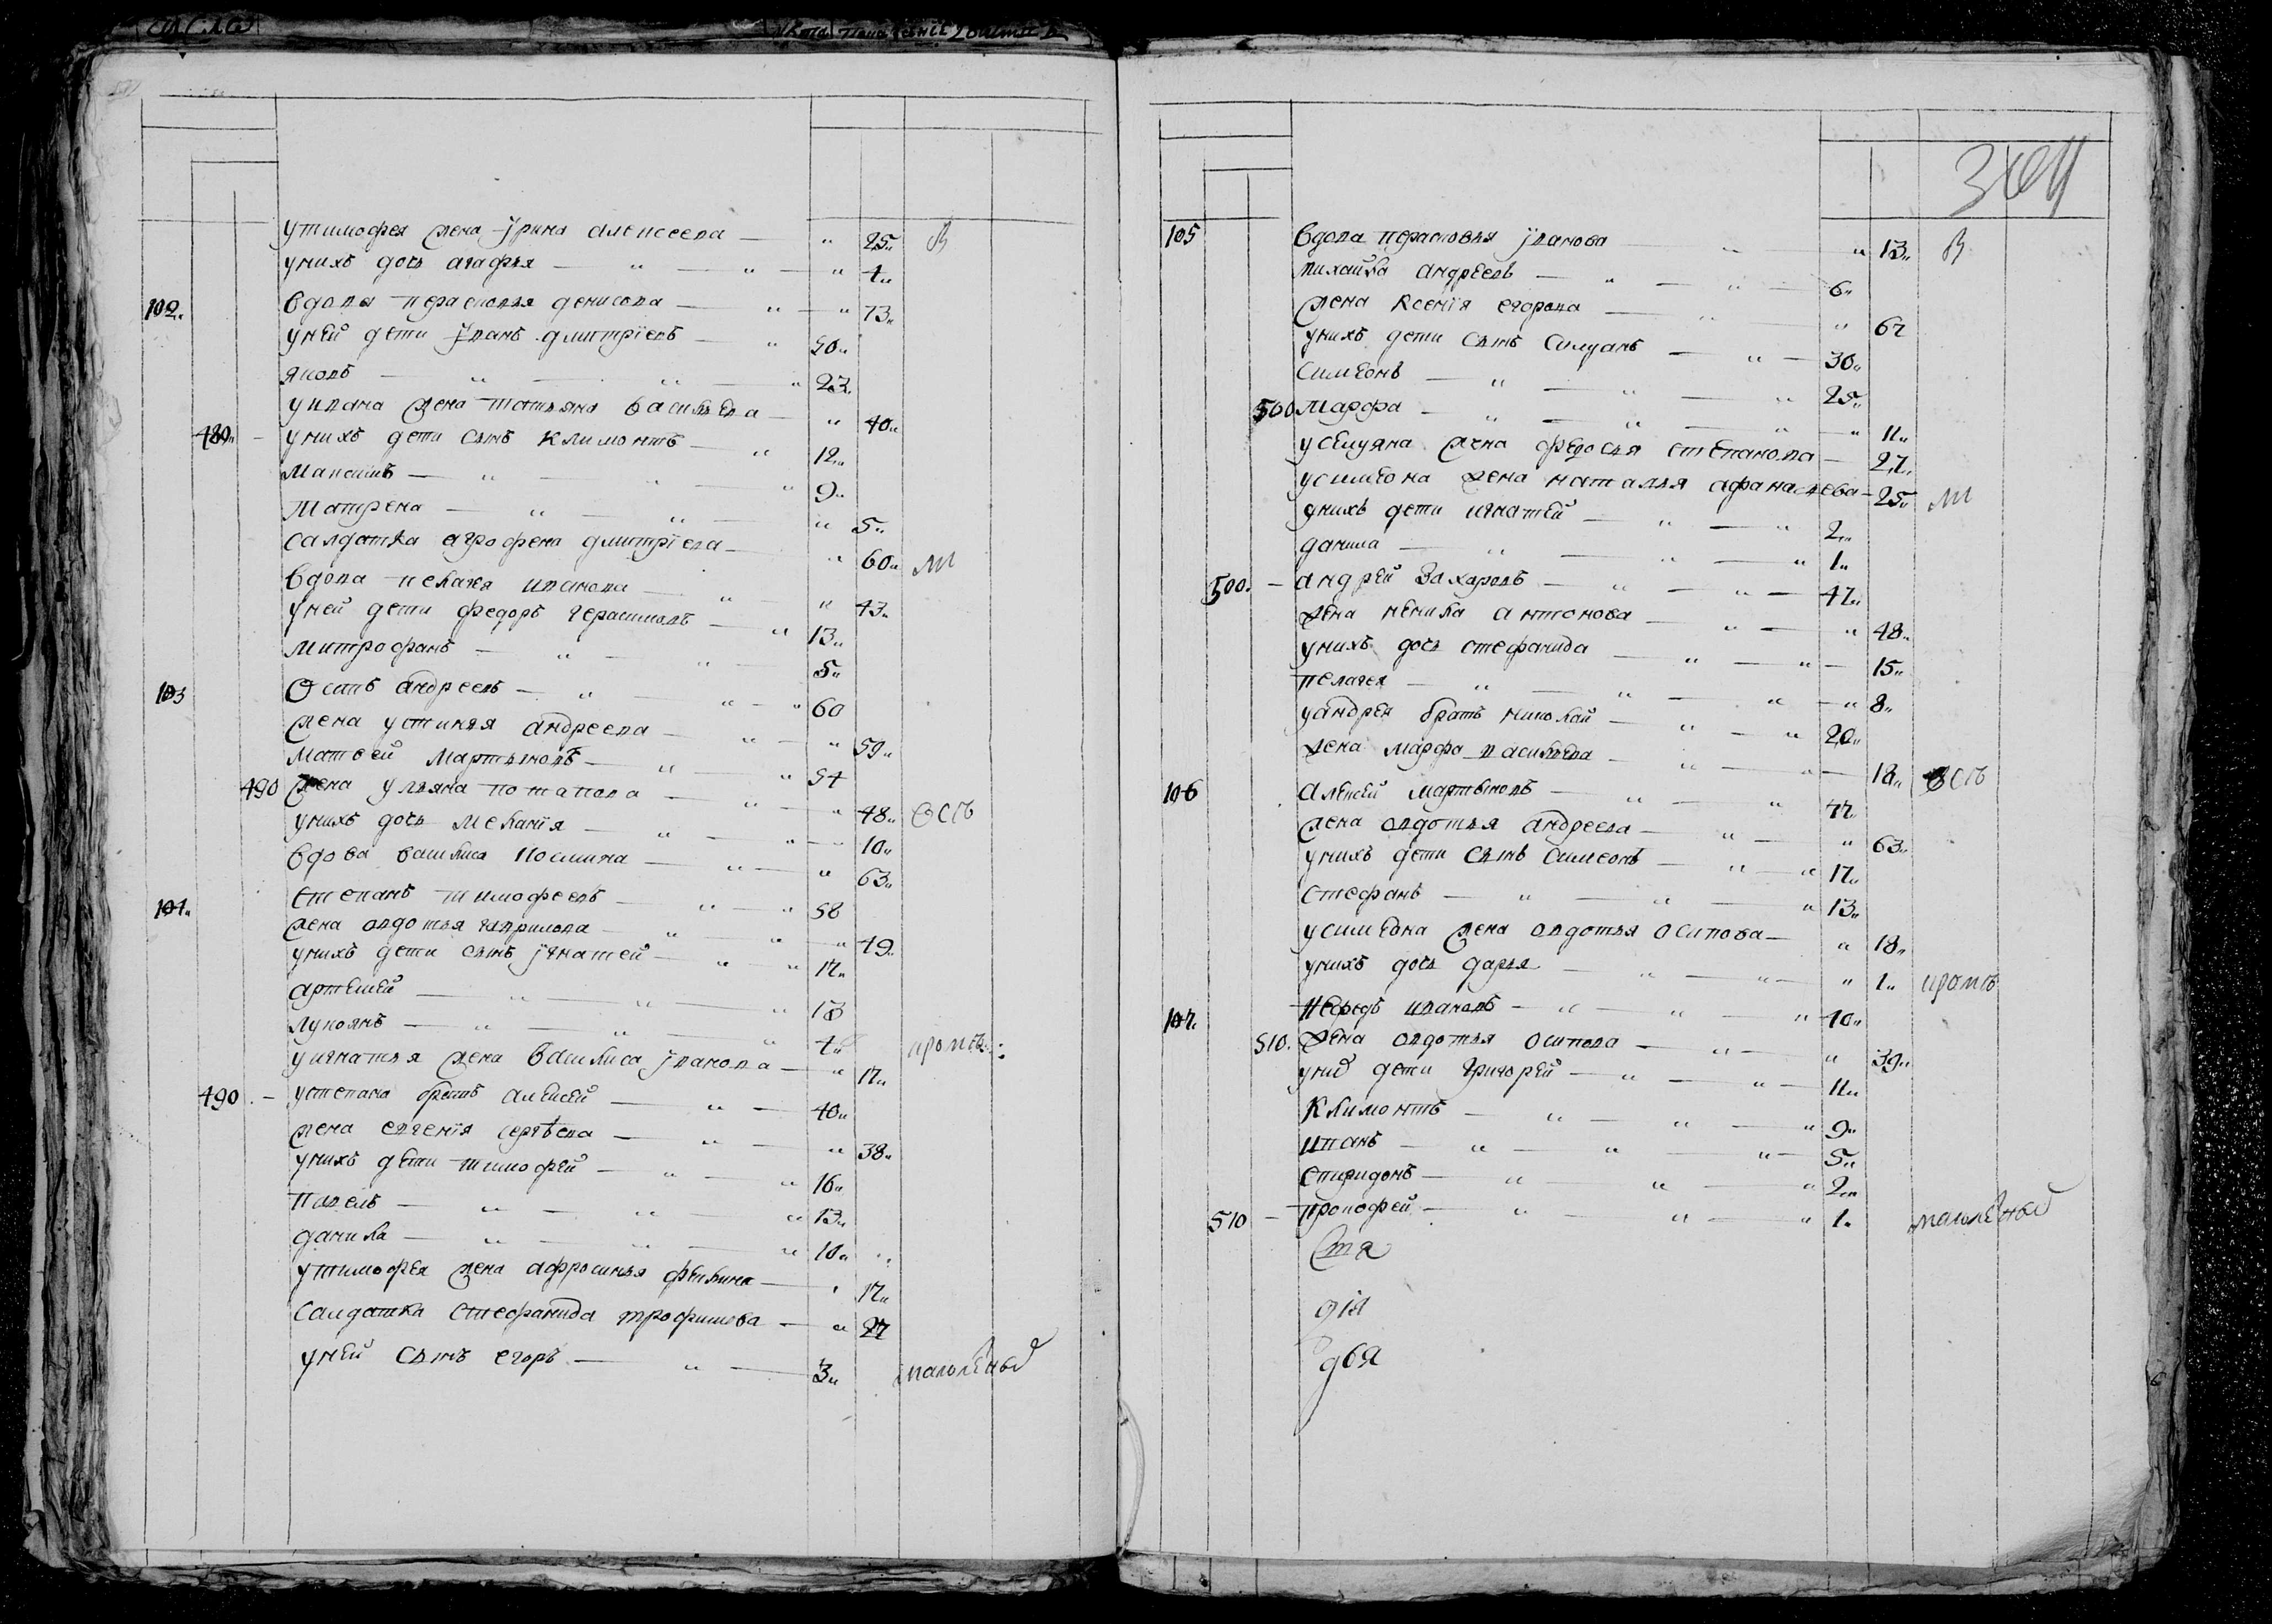 утимофея жена Ирина алексеева — " 25" В
унихъ дочь агафья — " — " — " 4"
102" вдова парасковья денисова — " — " 73"
уней дети Иванъ дмитріевъ — " 50"
яковъ — " — " — " 23"
уивана жена татьяна васильева — " 40"
480" — унихъ дети сынъ климонтъ — " 12"
максимъ — " — " — " 9"
матрена — " — " — " 5"
салдатка агрофена дмитріева — " 60" М
вдова пелагея иванова — " — " 43"
уней дети федоръ герасимовъ — " 13"
митрофанъ — " — " 5"
103 Осипъ андреевъ — " — " — " 60
жена устинья андреева — " — " 59"
матвей мартыновъ — " — " 54
490 жена ульяна потапова — " — " 48" ОСП
унихъ дочь меланія — " — " — 10"
вдова василиса космина — " — " 63"
104" степанъ тимофеевъ — " — " 58
жена авдотья гаврилова — " — " — " 49"
унихъ дети сынъ Игнатей — " — " 17"
артемей — " — " — " 13
лукоянъ — " — " — " 4"
уигнатья жена василиса Иванова — " 17"
490 — устепана братъ алексей — " — 40"
жена евгенія сергѣева — " — " 38"
унихъ дети тимофей — " — " 16"
павелъ — " — " — " 13"
данила — " — " — " 10"
утимофея жена афросинья филипа — " 17"
салдатка стефанида трофимова — " 27
уней сынъ егоръ — " — 3"
364
105 вдова парасковья Иванова — " " 73" В
михайла андреевъ — " — " — 6"
жена ксенія егорова — " " 67
унихъ дети сынъ силуанъ — " — 30"
симионъ — " — " — " 25"
500 марфа — " — " — " — " 11"
усилуяна жена федосья степанова — 27"
усимиона жена наталья афанасьева — 25" М
унихъ дети игнатей — " — " 2"
данила — " — " — " 1"
500. — андрей Захаровъ — " — " — 47"
жена ненила антонова — " — " 48"
унихъ дочь стефанида — " — " — 15"
пелагея — " — " — " — " 8"
уандрея братъ николай — " — " 20"
жена марфа васильева — " — " — 18" ОСП
106 алексей мартыновъ — " — " 77"
жена авдотья андреева — " — " 63"
унихъ дети сынъ симеонъ — " — " 17"
стефанъ — " — " — " 13"
усимиона жена авдотья осипова — " 18"
унихъ дочь дарья — " — " — " 1"
107" нефедъ ивановъ — " — " — " 40"
510. жена авдотья осипова — " — " 39"
уних дети григорей — " — " — 11"
климонтъ — " — " — " 9"
иванъ — " — " — " — 5"
спиридонъ — " — " — " 2"
510 — прокофей — " — " — " 1"